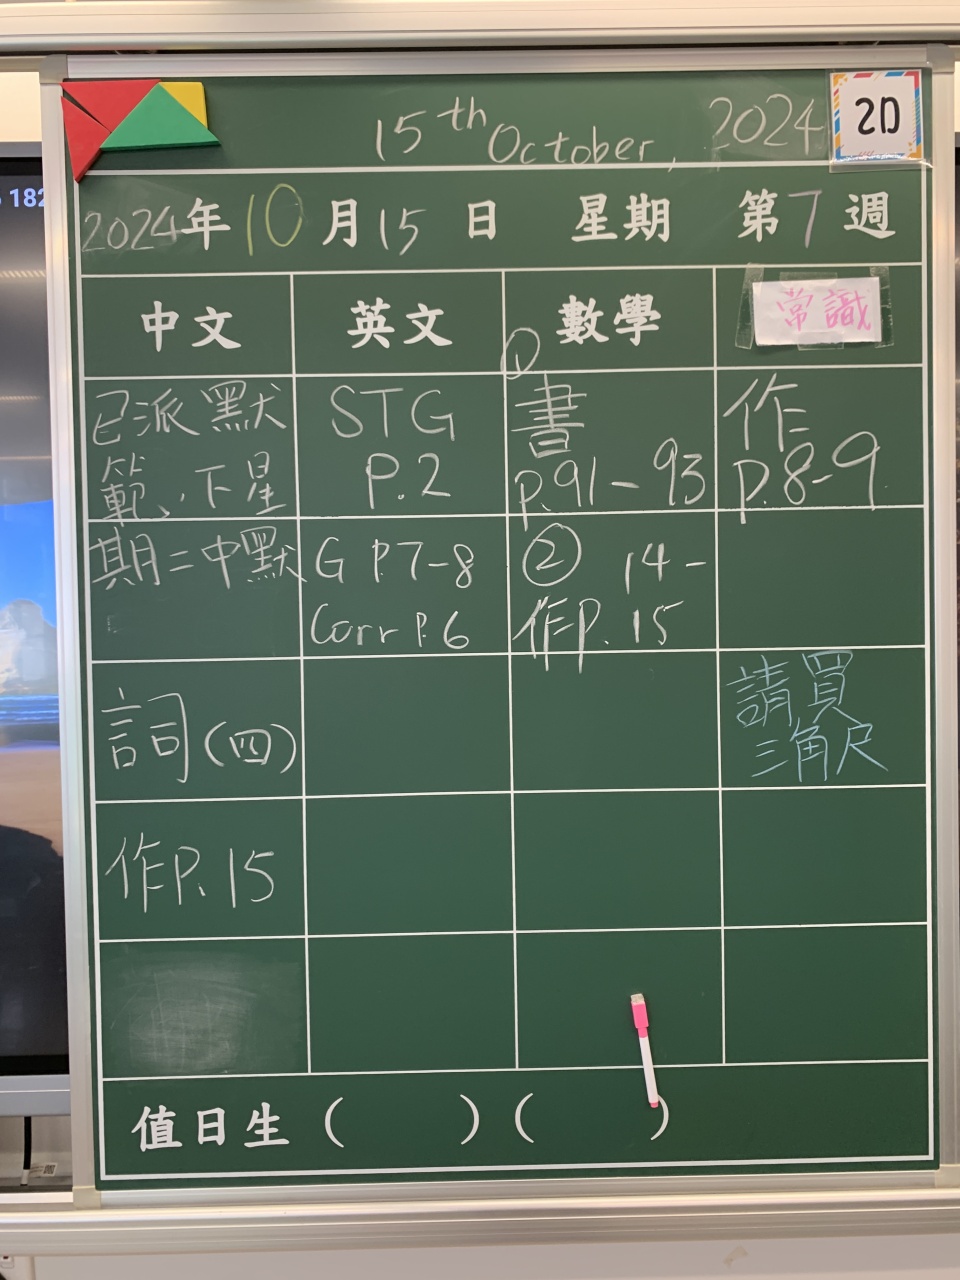 182
15th October, 2024
2D
2024年10月15日 星期 第7週
中文 英文 數學 常識
已派默
範、下星
期二中默
詞(四)
作P.15
STG
P.2
G P.7-8
Corr P.6
① 書
p.91-93
② 14-
作P. 15
作
p.8-9
請買
三角尺
值日生 ( ) ( )